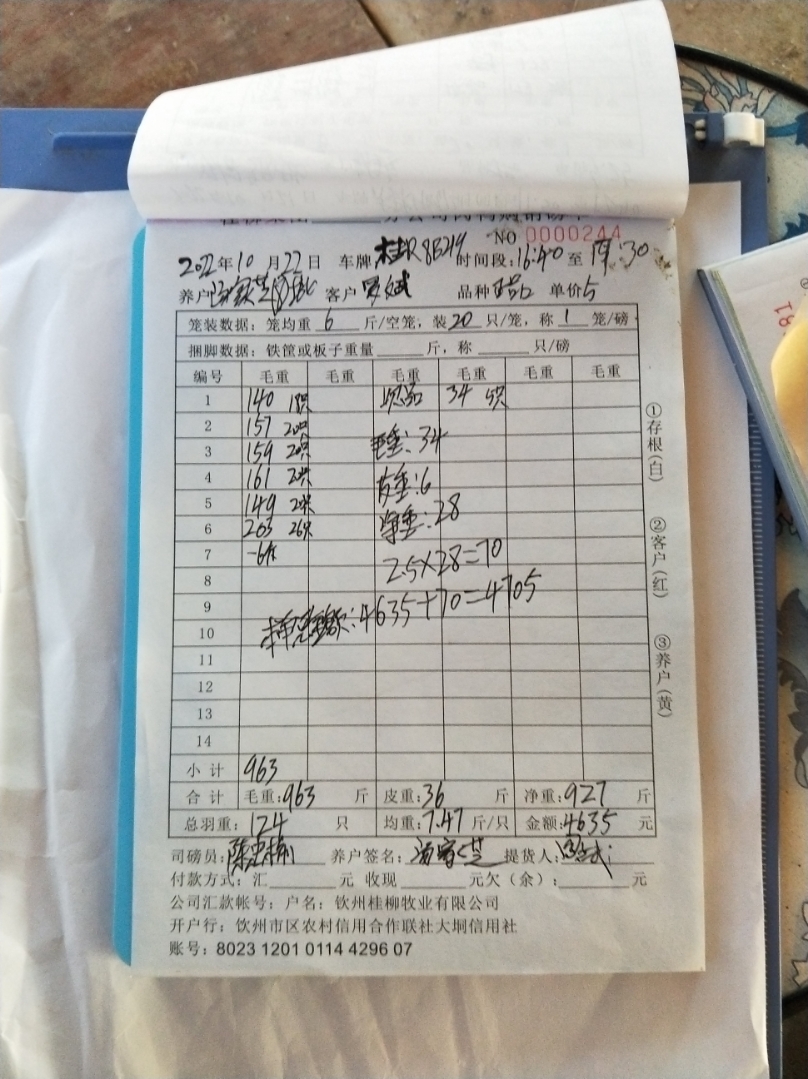 NO 0000244
2022年10月22日 车牌 桂R8B219 时间段:16:40 至 19:30
养户 客户 品种 单价5
笼装数据：笼均重 6 斤/空笼，装 20 只/笼，称 1 笼/磅
捆脚数据：铁筐或板子重量 斤，称 只/磅
编号 毛重 毛重 毛重 毛重 毛重 毛重
1 140 18只 次品 34 5只
2 157 20只
3 159 20只 毛重：34
4 161 20只 皮重：6
5 149 20只 净重：28
6 203 26只
7 -6 2.5×28=70
8
9 4635+70=4705
10
11
12
13
14
小计 963
合计 毛重:963 斤 皮重:36 斤 净重:927 斤
总羽重：124 只 均重:7.47 斤/只 金额:4635 元
司磅员： 养户签名： 提货人：
付款方式：汇 元 收现 元欠（余）： 元
公司汇款帐号：户名：钦州桂柳牧业有限公司
开户行：钦州市区农村信用合作联社大垌信用社
账号：8023 1201 0114 4296 07
①存根（白）
②客户（红）
③养户（黄）